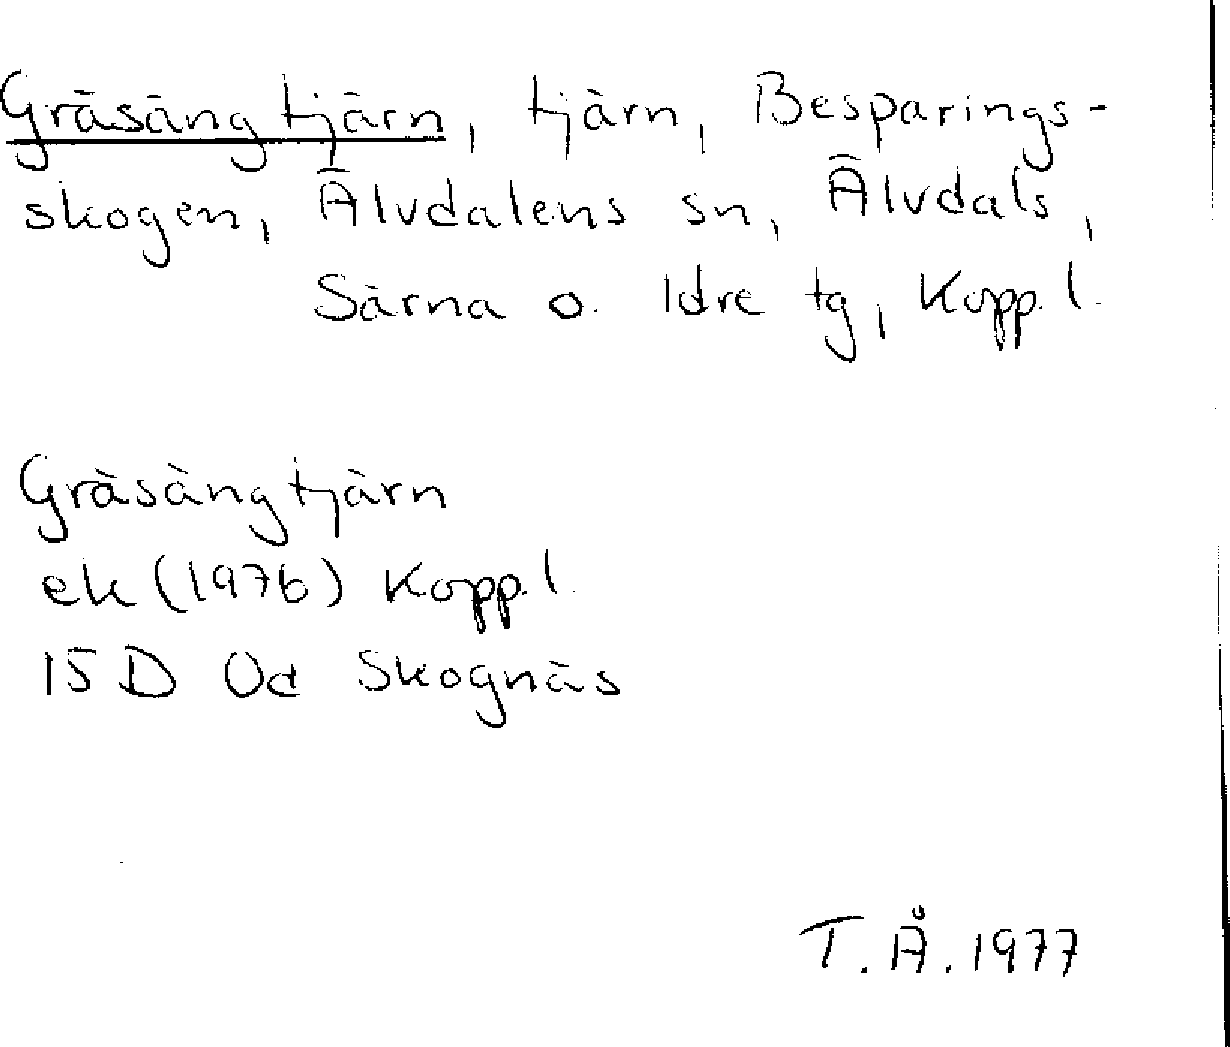 Gräsängtjärn, tjärn, Besparings-
skogen, Älvdalens sn, Älvdals,
Särna o. Idre tg, Kopp. l.
Gräsängtjärn
ek (1976) Kopp. l.
15 D 0d Skognäs
T. Å. 1977